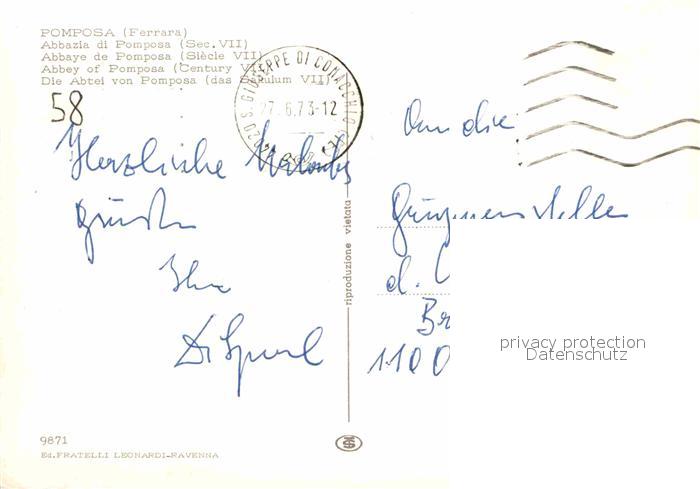 POMPOSA (Ferrara)
Abbazia di Pomposa (Sec. VII)
Abbaye de Pomposa (Siècle VII)
Abbey of Pomposa (Century V
Die Abtei von Pomposa (das Säkulum VII)
58
S. GIUSEPPE DI COMACCHIO
27.6.73-12
Herzliche Urlaubs
grüße
Ihr
An die
d.
Br
1100
riproduzione vietata
privacy protection
Datenschutz
9871
Ed. FRATELLI LEONARDI-RAVENNA